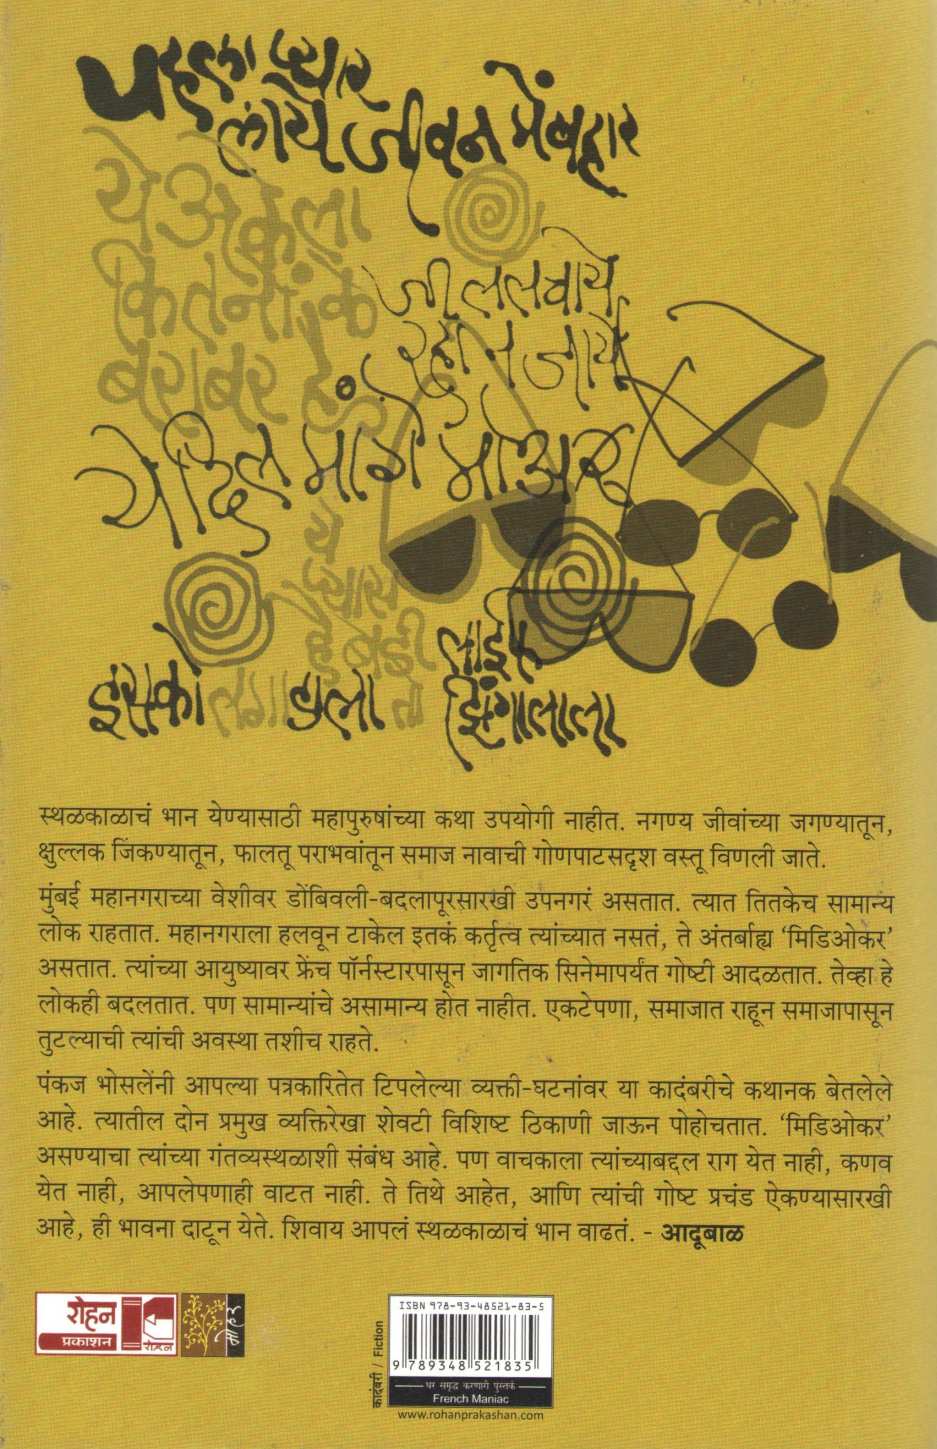 पहला प्यार
लाये जीवन में बहार
ये अकेला
कितनों के
बराबर है
जी ललचाये
रहा न जाये
ये दिल मांगे मोअर
ये
प्यास
है बडी
इसको लगा डाला तो लाईफ
झिंगालाला
स्थळकाळाचं भान येण्यासाठी महापुरुषांच्या कथा उपयोगी नाहीत. नगण्य जीवांच्या जगण्यातून,
क्षुल्लक जिंकण्यातून, फालतू पराभवांतून समाज नावाची गोणपाटसदृश वस्तू विणली जाते.
मुंबई महानगराच्या वेशीवर डोंबिवली-बदलापूरसारखी उपनगरं असतात. त्यात तितकेच सामान्य
लोक राहतात. महानगराला हलवून टाकेल इतकं कर्तृत्व त्यांच्यात नसतं, ते अंतर्बाह्य ‘मिडिओकर’
असतात. त्यांच्या आयुष्यावर फ्रेंच पॉर्नस्टारपासून जागतिक सिनेमापर्यंत गोष्टी आदळतात. तेव्हा हे
लोकही बदलतात. पण सामान्यांचे असामान्य होत नाहीत. एकटेपणा, समाजात राहून समाजापासून
तुटल्याची त्यांची अवस्था तशीच राहते.
पंकज भोसलेंनी आपल्या पत्रकारितेत टिपलेल्या व्यक्ती-घटनांवर या कादंबरीचे कथानक बेतलेले
आहे. त्यातील दोन प्रमुख व्यक्तिरेखा शेवटी विशिष्ट ठिकाणी जाऊन पोहोचतात. ‘मिडिओकर’
असण्याचा त्यांच्या गंतव्यस्थळाशी संबंध आहे. पण वाचकाला त्यांच्याबद्दल राग येत नाही, कणव
येत नाही, आपलेपणाही वाटत नाही. ते तिथे आहेत, आणि त्यांची गोष्ट प्रचंड ऐकण्यासारखी
आहे, ही भावना दाटून येते. शिवाय आपलं स्थळकाळाचं भान वाढतं. - आदूबाळ
रोहन
प्रकाशन
रोहन
मोहर
कादंबरी / Fiction
ISBN 978-93-48521-83-5
9 789348 521835
घर समृद्ध करणारी पुस्तकं
French Maniac
www.rohanprakashan.com